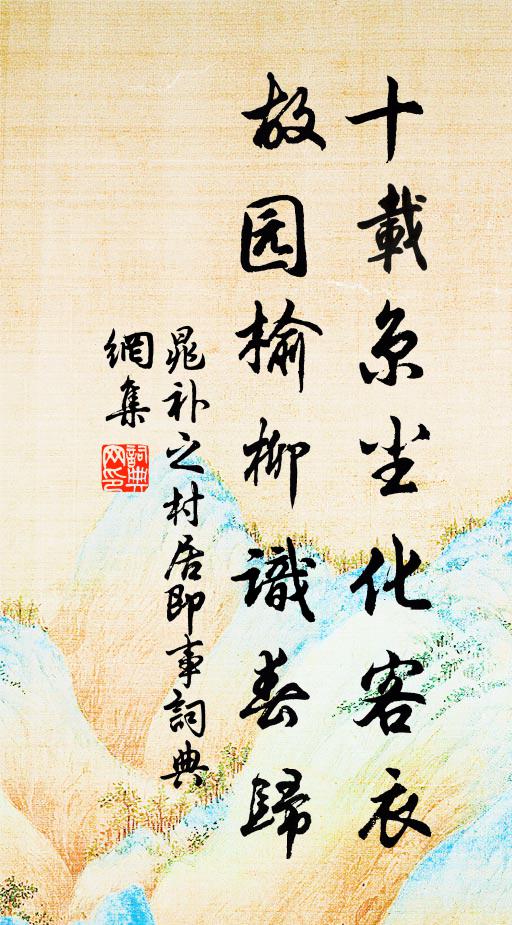 十載京尘化客衣
故园榆柳識春歸
晁补之村居即事詞典
網集
詞典網印